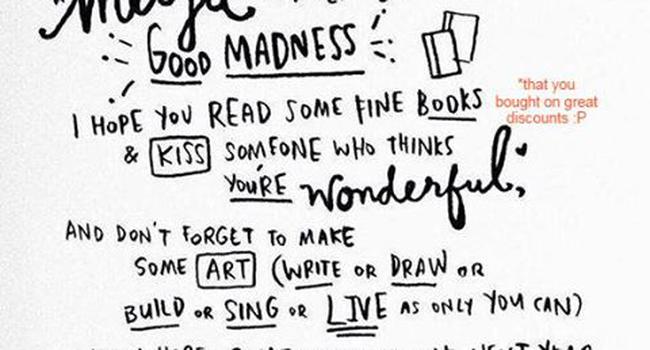 GOOD MADNESS
I HOPE YOU READ SOME FINE BOOKS
*that you
bought on great
discounts :P
& KISS SOMEONE WHO THINKS
YOU'RE Wonderful,
AND DON'T FORGET TO MAKE
SOME ART (WRITE OR DRAW OR
BUILD OR SING OR LIVE AS ONLY YOU CAN)